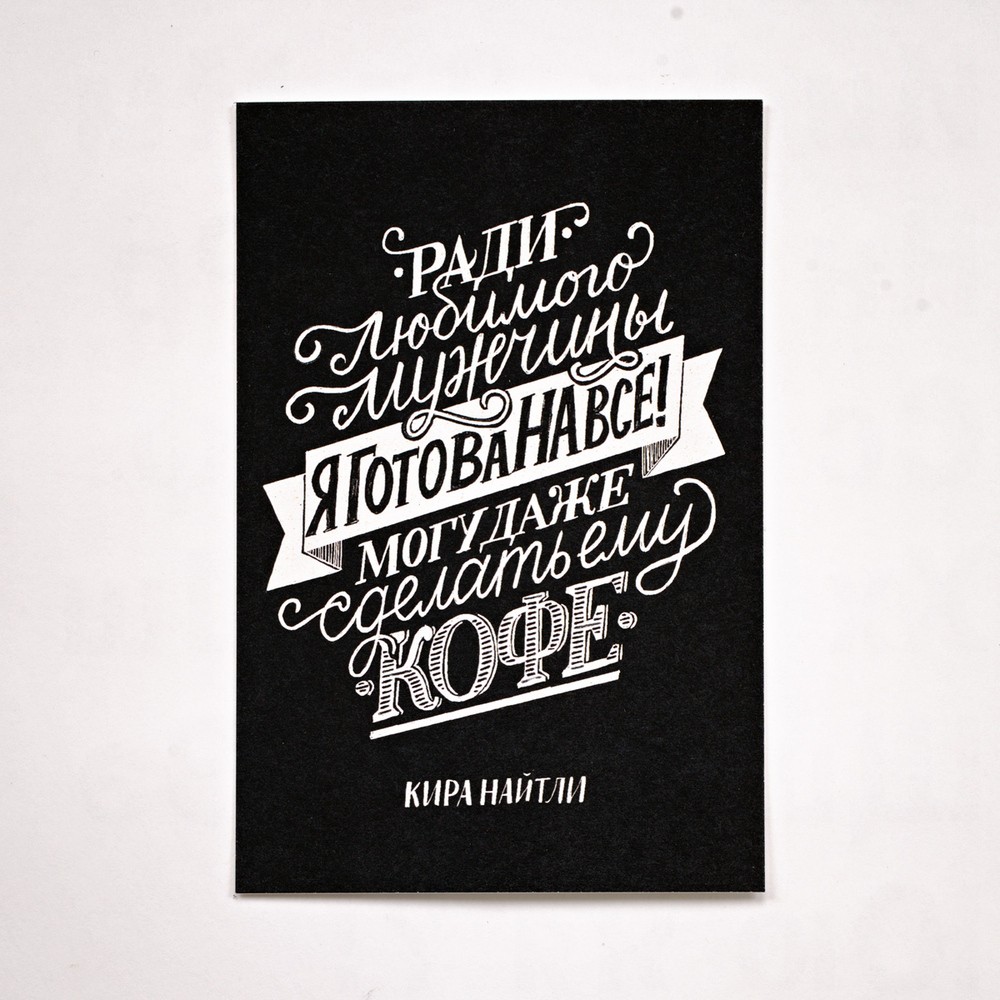 РАДИ
любимого
мужчины
Я ГОТОВА НА ВСЕ!
МОГУ ДАЖЕ
сделать ему
КОФЕ
КИРА НАЙТЛИ